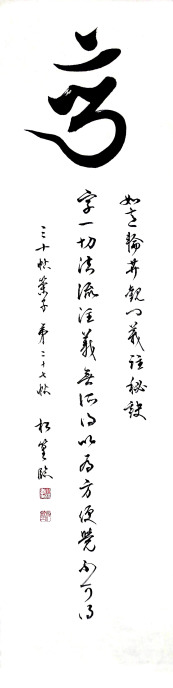 如意輪菩薩観門義注秘訣
字一切法流注義無所得以為方便覺不可得
三十帖策子 第二十七帖 松篁臨